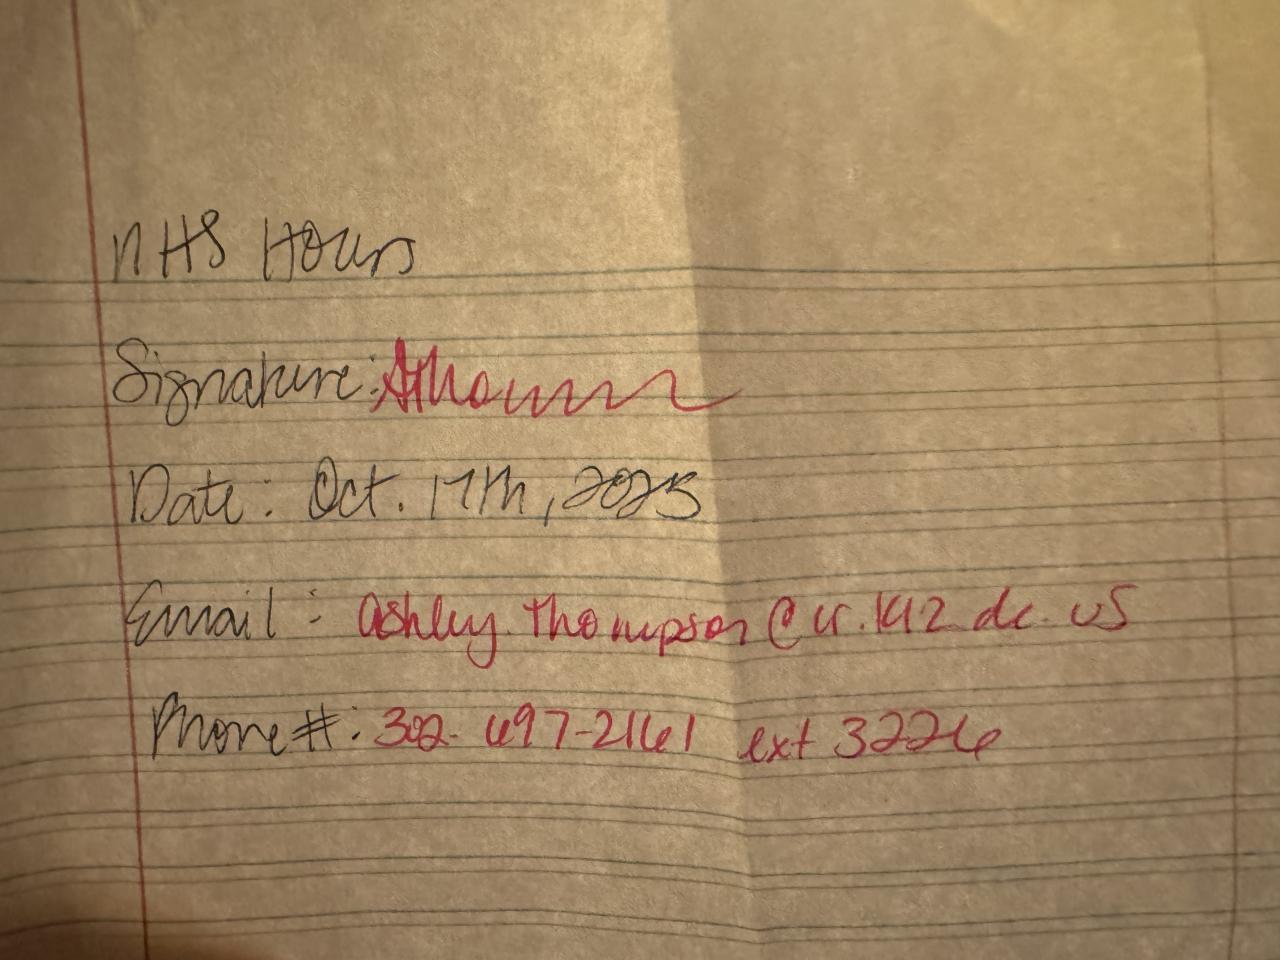 NHS Hours
Signature: AThom
Date: Oct. 17th, 2025
Email: ashley.thompson@cr.k12.de.us
Phone #: 302-697-2161 ext 3226